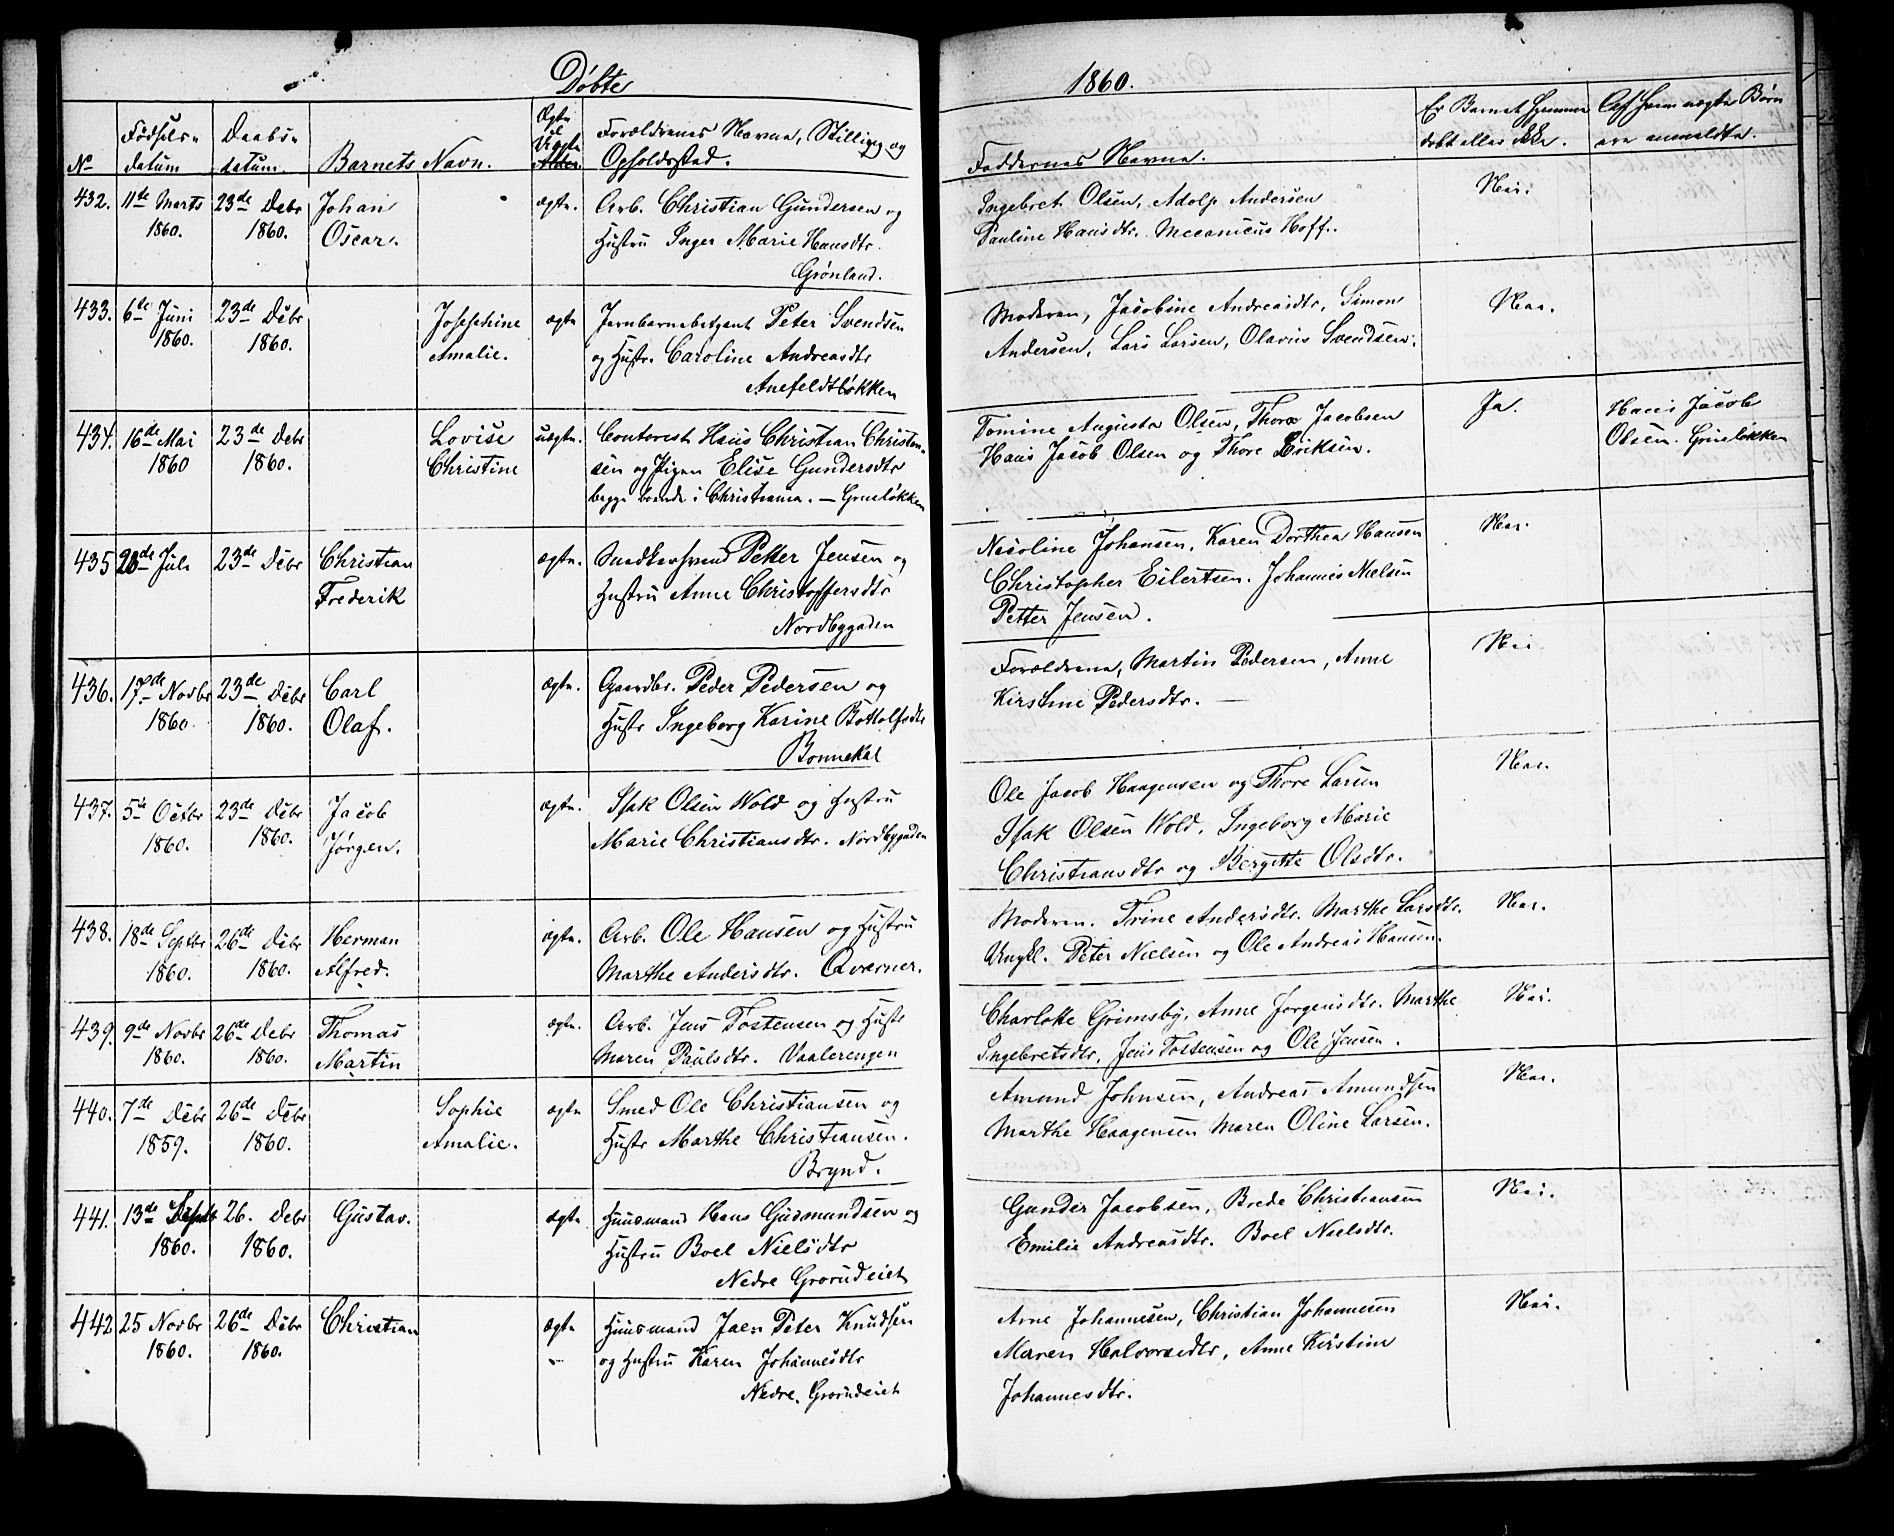 Døbte
1860.
No
Fødsels-
datum
Daabs-
datum.
Barnets Navn.
Ægte
el
Uægte
Forældrenes Navne, Stilling og
Opholdsted.
Faddernes Navne.
Er Barnet hjemme
døbt eller ikke.
Af hvem uægte Børn
ere anmeldte.
432. 11te Marts 23de Debr Johan ægte. Arb. Christian Gundersen og
1860. 1860. Oscar. Hustru Inger Marie Hansdtr.
Grønland.
Ingebret Olsen, Adolf Andersen Nei.
Pauline Hansdtr. Mecanicus Hoff.
433. 6te Juni 23de Debr Josephine ægte Jernbanebetjent Peter Svendsen
1860. 1860. Amalie. og Hustr. Caroline Andreasdtr
Anefeldtløkken
Moderen, Jacobine Andreasdtr, Simon Nei.
Andersen, Lars Larsen, Olavus Svendsen.
434. 16de Mai 23de Debr Lovise uægte. Contorist Hans Christian Christen-
1860 1860. Christine sen og Pigen Elise Gundersdtr
begge boende i Christiania. — Grueløkken
Tomine Augusta Olsen, Thora Jacobsen Ja. Hans Jacob
Hans Jacob Olsen og Thore Eriksen. Olsen. Grueløkken
435 20de Juli 23de Debr Christian ægte. Snedkersvend Petter Jensen og
Frederik Hustru Anne Christoffersdtr
Nordbygaden
Nicoline Johansen, Karen Dorthea Hansen Nei.
Christopher Eilertsen. Johannes Nielsen
Petter Jensen.
436. 17de Novbr 23de Debr Carl ægte. Gaardbr. Peder Pedersen og
1860 1860. Olaf. Hustr Ingeborg Karine Bottolfsdtr
Bonnekal
Forældrene, Martin Pedersen, Anne Nei
Kirstine Pedersdtr. —
437. 5te Octbr 23de Debr Jacob ægte. Isak Olsen Wold og Hustru
1860. 1860. Jørgen. Marie Christiansdtr. Nordbygaden
Ole Jacob Haagensen og Thore Larsen Nei.
Isak Olsen Wold, Ingeborg Marie
Christiansdtr og Bergitte Olsdtr.
438. 18de Septbr 26de Debr Herman ægte. Arb. Ole Hansen og Hustru
1860. 1860. Alfred. Marthe Andersdtr. Qværner.
Moderen. Trine Andersdtr. Marthe Larsdtr. Nei.
Ungkl. Peter Nielsen og Ole Andreas Hansen.
439. 9de Novbr 26de Debr Thomas ægte. Arb. Jens Tostensen og Hustr
1860. 1860. Martin Maren Paulsdtr. Vaalerengen
Charlotte Grimsby, Anne Jørgensdtr. Marthe Nei.
Ingebretsdtr, Jens Tostensen og Ole Jensen.
440. 7de Debr 26de Debr Sophie ægte Smed Ole Christiansen og
1859. 1860. Amalie. Hustr Marthe Christiansen.
Brynd.
Amund Johnsen, Andreas Amundsen Nei.
Marthe Haagensen Maren Oline Larsen.
441. 13de Septb 26. Debr Gustav. ægte Huusmand Hans Gudmundsen og
1860. 1860. Hustru Boel Nielsdtr
Nedre Grorudeiet
Gunder Jacobsen, Brede Christiansen Nei.
Emilie Andreasdtr. Boel Nielsdtr.
442 25 Novbr 26de Debr Christian ægte Huusmand Jaen Peter Knudsen
1860. 1860. og Hustru Karen Johannesdtr
Nedre. Grorudeiet
Arne Johannesen, Christian Johannesen Nei.
Maren Halvorsdtr, Anne Kirstine
Johannesdtr.